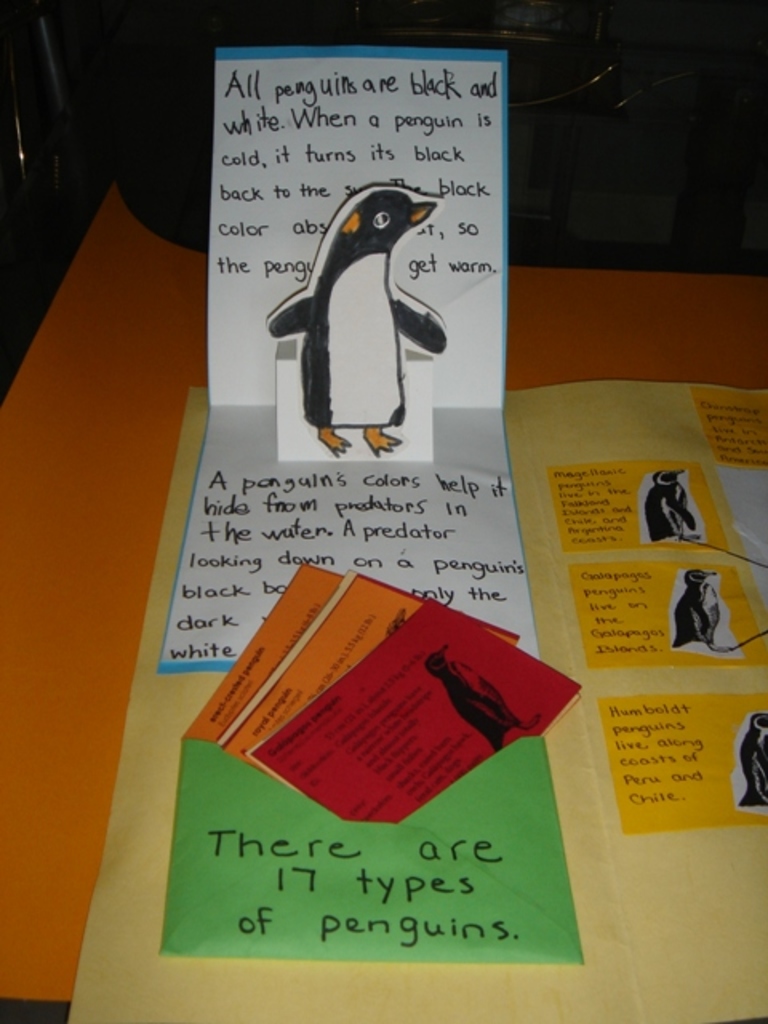 All penguins are black and
white. When a penguin is
cold, it turns its black
back to the The black
color so
the get warm.
A penguin's colors help it
hide from predators in
the water. A predator
looking down on a penguin's
black only the
dark
white
erect-crested penguin
royal penguin
Galapagos penguin
There are
17 types
of penguins.
Chinstrap
penguins
live in
Antarctica
and South
America
Magellanic
penguins
live in the
Falkland
Islands and
Chile and
Argentina
coasts.
Galapagos
penguins
live on
the
Galapagos
Islands.
Humboldt
penguins
live along
coasts of
Peru and
Chile.